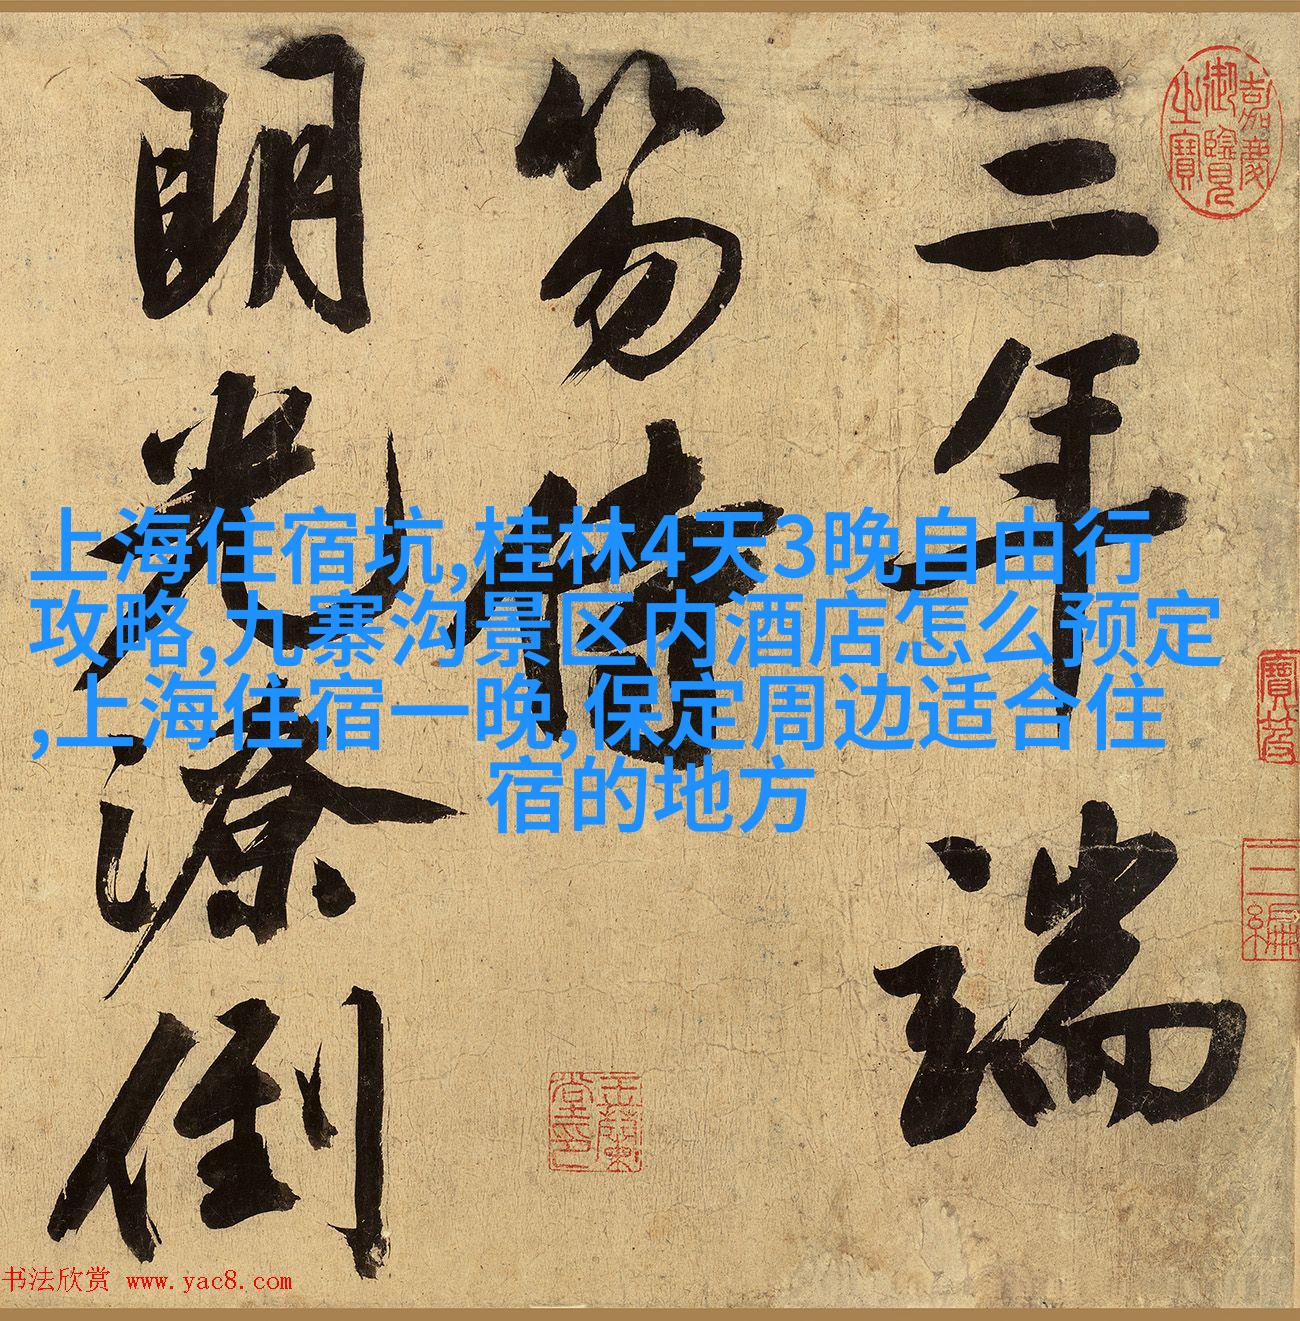 三年端
笏侍
明光潦倒
嘉慶
御覽
之寶
上海住宿坑,桂林4天3晚自由行
攻略,九寨沟景区内酒店怎么预定
,上海住宿一晚,保定周边适合住
宿的地方
书法欣赏 www.yac8.com